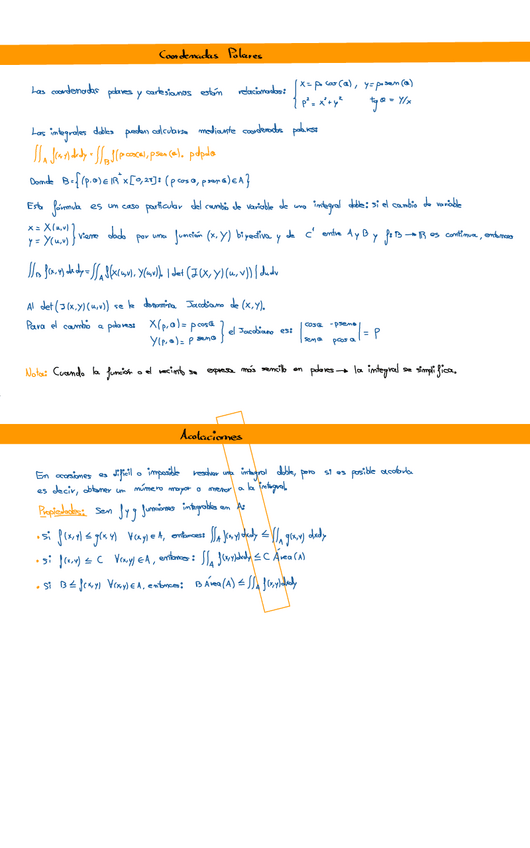 Coordenadas Polares
Las coordenadas polares y cartesianas están relacionadas: { x = ρ cos(θ), y = ρ sen(θ)
ρ² = x² + y² tg θ = Y/x
Las integrales dobles pueden calcularse mediante coordenadas polares
∬_A f(x,y) dxdy = ∬_B f(ρ cos(θ), ρ sen(θ)). ρ dρdθ
Donde B = {(ρ,θ) ∈ ℝ⁺ × [0,2π]: (ρ cos θ, ρ sen θ) ∈ A}
Esta fórmula es un caso particular del cambio de variable de una integral doble: si el cambio de variable
x = X(u,v)
y = Y(u,v) } viene dado por una función (X, Y) biyectiva y de C¹ entre A y B y f: B → ℝ es continua, entonces
∬_B f(x,y) dxdy = ∬_A f(X(u,v), Y(u,v)). | det (J(X,Y)(u,v)) | dudv
Al det (J(X,Y)(u,v)) se le denomina Jacobiano de (X,Y).
Para el cambio a polares X(ρ,θ) = ρ cos θ
Y(ρ,θ) = ρ sen θ } el Jacobiano es: | cos θ -ρ sen θ
sen θ ρ cos θ | = ρ
Nota: Cuando la función o el recinto se expresa más sencillo en polares → la integral se simplifica.
Acotaciones
En ocasiones es difícil o imposible resolver una integral doble, pero si es posible acotarla
es decir, obtener un número mayor o menor a la integral.
Propiedades: Sean f y g funciones integrables en A:
• Si f(x,y) ≤ g(x,y) ∀(x,y) ∈ A, entonces: ∬_A f(x,y) dxdy ≤ ∬_A g(x,y) dxdy
• Si f(x,y) ≤ C ∀(x,y) ∈ A, entonces: ∬_A f(x,y) dxdy ≤ C Área(A)
• Si B ≤ f(x,y) ∀(x,y) ∈ A, entonces: B Área(A) ≤ ∬_A f(x,y) dxdy